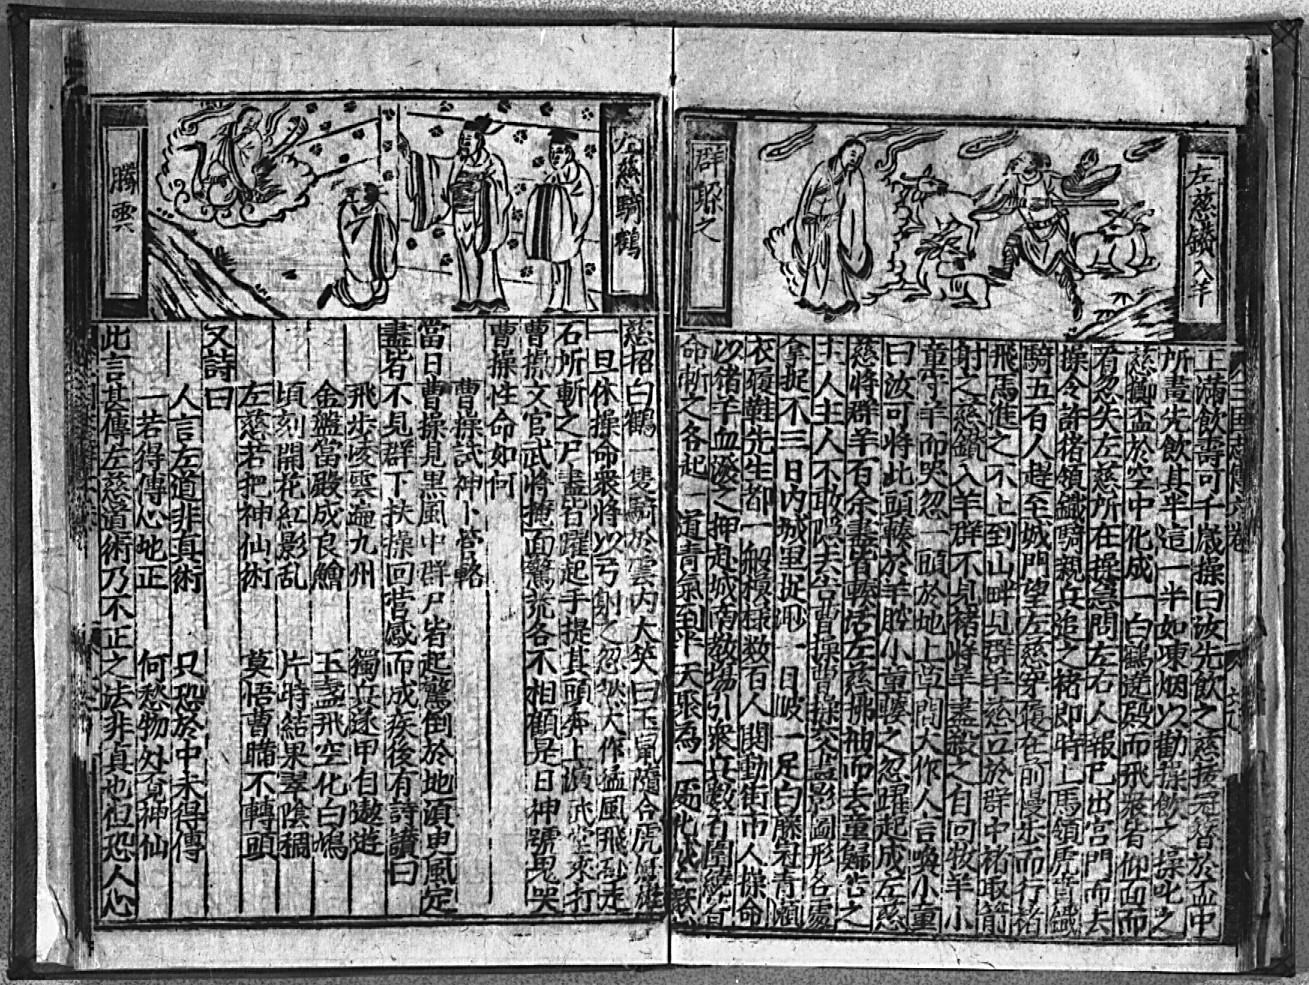 左慈鑽入羊
群躲之
上滿飲壽可千歲操曰汝先飲之慈拔冠簪於盃中
所畫先飲其半這一半如凍烟以勸操飲之操叱之
慈擲盃於空中化成一白鶴遶殿而飛衆皆仰面而
看忽失左慈所在操急問左右人報已出宮門而去
操令許褚領鐵騎親兵追之褚即時上馬領虎賁鐵
騎五百人趕至城門望左慈穿履在前慢步而行褚
飛馬進之不上到山畔見群羊慈立於群中褚取箭
射之慈鑽入羊群不見褚將羊盡殺之自回牧羊小
童守羊而哭忽一頭於地上草間大作人言喚小童
曰汝可將此頭輳於羊腔小童輳之忽躍起成左慈
慈將群羊百余盡皆輳活左慈拂袖而去童歸告之
主人主人不敢隱去告曹操曹操 畫影圖形各處
拿捉不三日內城里捉 一日跛一足白藤冠青懶
衣履鞋先生都一般模樣数百人閧動街市人操命
以猪羊血潑之押赴城南教場引衆兵数百圍繞
命斬之各起一道青氣到半天聚為一處化成左慈
左慈騎鶴
騰雲
慈招白鶴一隻騎於雲內大笑曰玉鼠隨合虎奸雄
一旦休操命衆將以弓射之忽然大作猛風飛砂走
石所斬之尸盡皆躍起手提其頭奔上演武堂來打
曹操文官武將掩面驚荒各不相顧是日神號鬼哭
曹操性命如何
曹操試神卜管輅
當日曹操見黑風中群尸皆起驚倒於地須臾風定
盡皆不見群下扶操回营感而成疾後有詩讃曰
飛步凌雲遍九州 獨兵遂甲自遨遊
金盤當殿成良鱠 玉盞飛空化白鳩
頃刻開花紅影乱 片時結果翠陰稠
左慈若把神仙術 莫悟曹瞞不轉頭
又詩曰
人言左道非真術 只恐於中未得傳
一若得傳心地正 何愁物外覓神仙
此言甚傳左慈道術乃不正之法非真也但恐人心